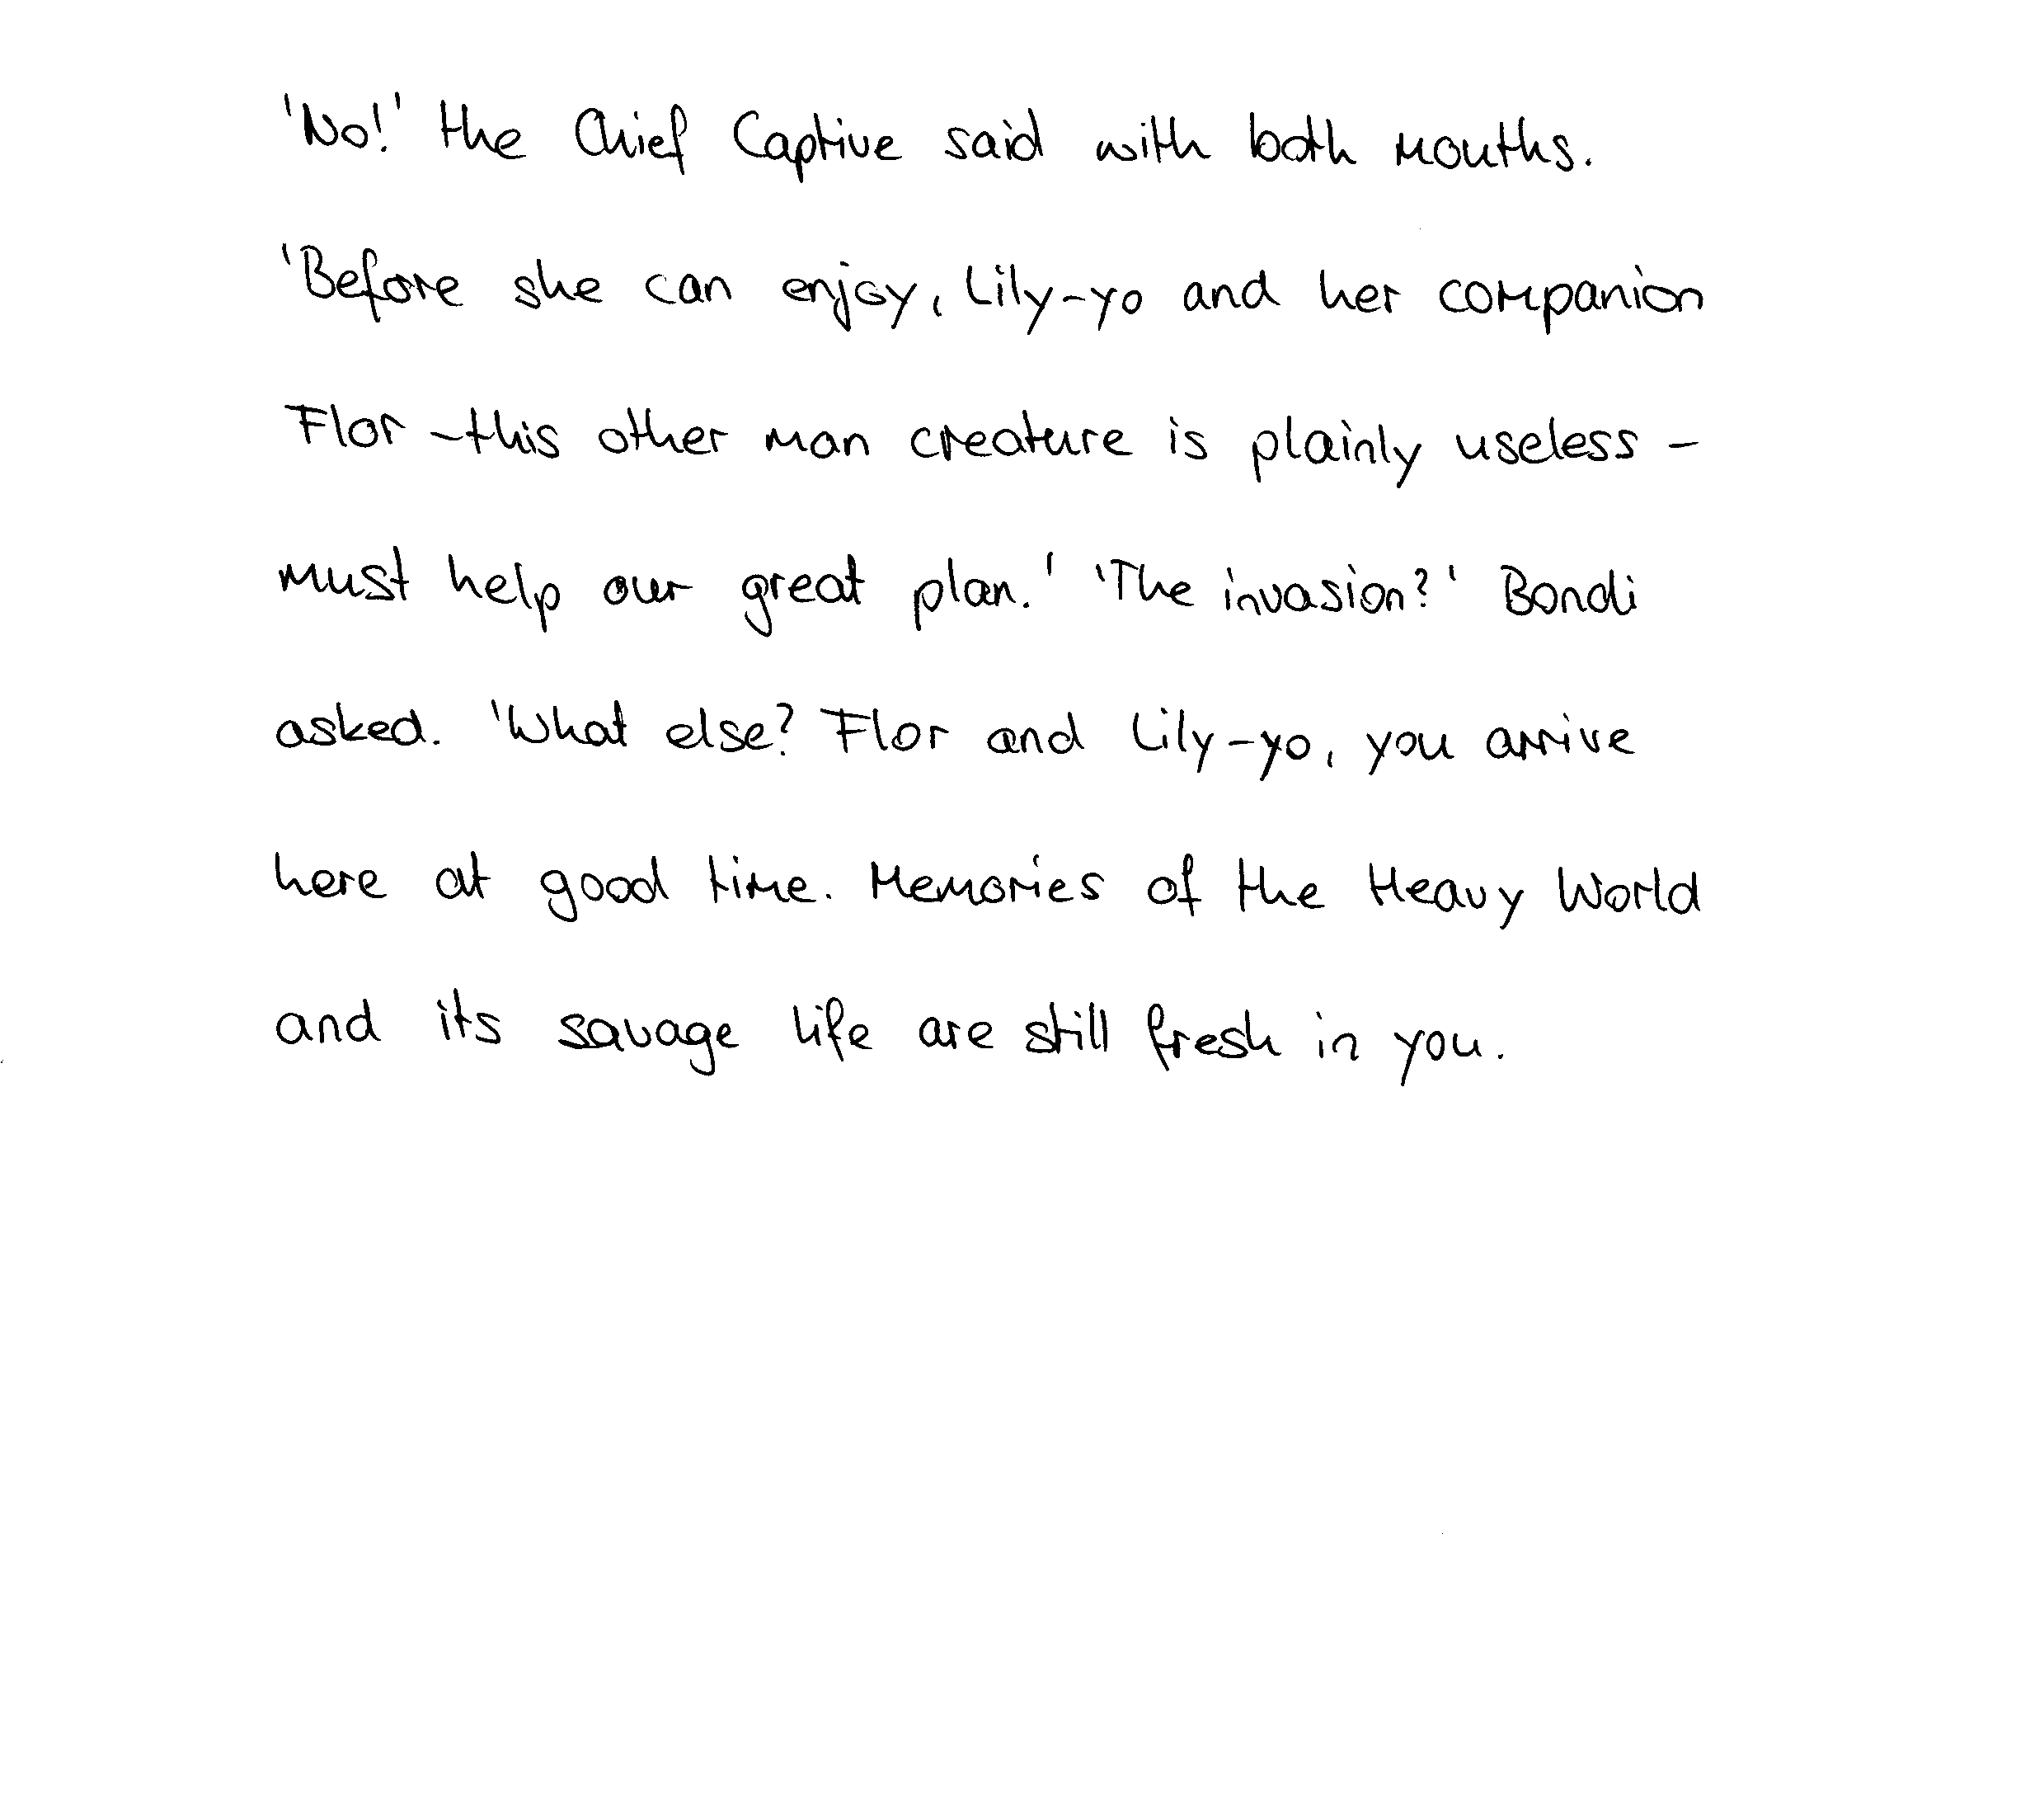 'No!' the Chief Captive said with both mouths.
'Before she can enjoy, Lily-yo and her companion
Flor - this other man creature is plainly useless -
must help our great plan.' 'The invasion?' Bondi
asked. 'What else? Flor and Lily-yo, you arrive
here at good time. Memories of the Heavy World
and its savage life are still fresh in you.